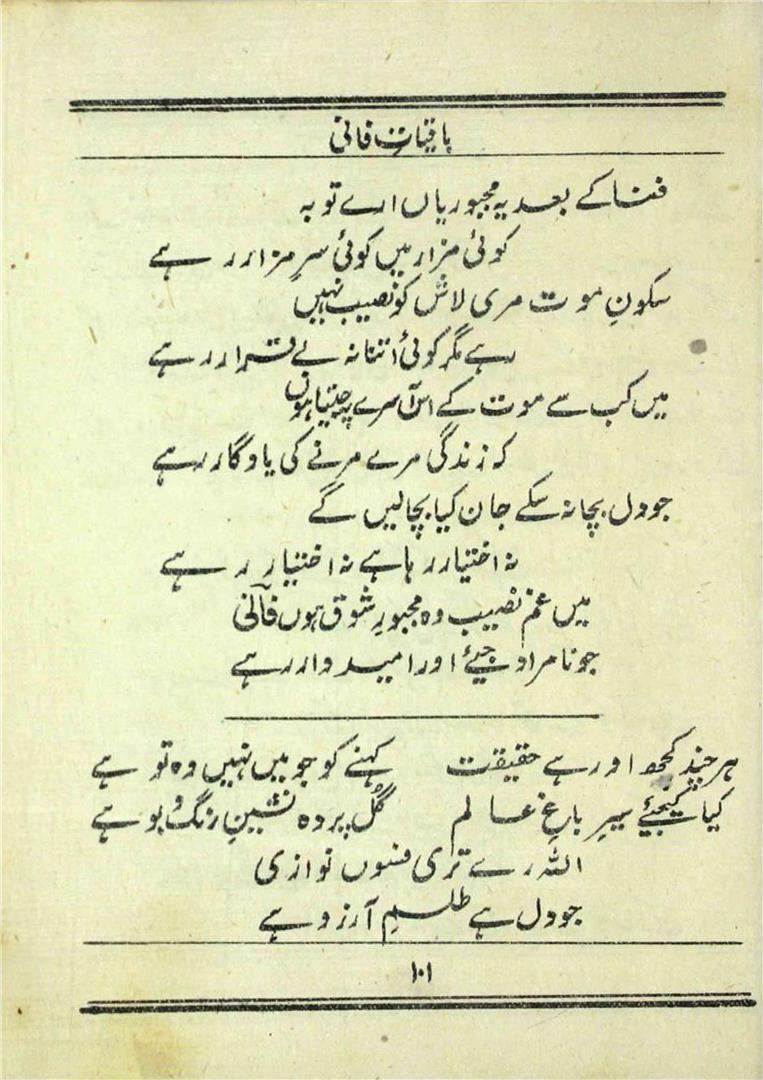 باقیات فانی
فنا کے بعد یہ مجبوریاں ارے توبہ
کوئی مزار میں کوئی سرِ مزار رہے
سکونِ موت مری لاش کو نصیب نہیں
رہے مگر کوئی اتنا نہ بے قرار رہے
میں کب سے موت کے اس آسرے پہ جیتا ہوں
کہ زندگی مرے مرنے کی یادگار رہے
جو دل بچا نہ سکے جان کیا بچا لیں گے
نہ اختیار رہا ہے نہ اختیار رہے
میں غم نصیب وہ مجبورِ شوق ہوں فانؔی
جو نامراد جیئے اور امیدوار رہے
ہر چند کچھ اور ہے حقیقت کہنے کو جو میں نہیں وہ تو ہے
کیا کیجئے سیرِ باغِ عالم گُل پردہ نشینِ رنگ و بو ہے
اللہ رے تری فسوں نوازی
جو دل ہے طلسمِ آرزو ہے
۱۰۱